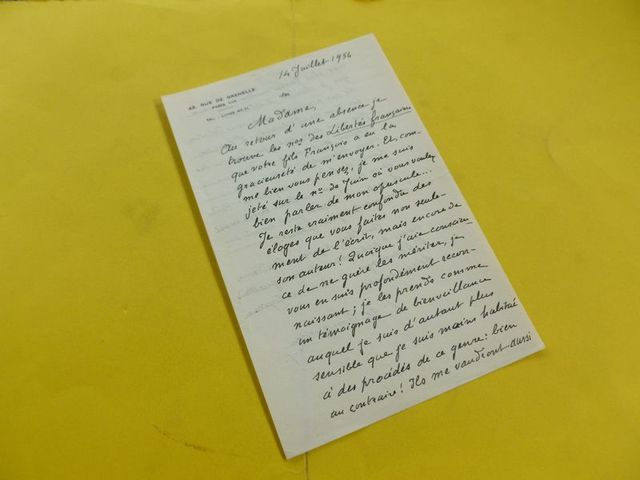 14 Juillet 1956
42, RUE DE GRENELLE
PARIS VIIe
TÉL. : LITTRÉ
Madame,
Au retour d'une absence je
trouve les nos des Libertés françaises
que votre fils François a eu la
gracieuseté de m'envoyer. Et, com-
me bien vous pensez, je me suis
jeté sur le no de Juin où vous voulez
bien parler de mon opuscule...
Je reste vraiment confondu des
éloges que vous faites non seule-
ment de l'écrit, mais encore de
son auteur! Quoique j'aie conscien-
ce de ne guère les mériter, je
vous en suis profondément recon-
naissant; je les prends comme
un témoignage de bienveillance
auquel je suis d'autant plus
sensible que je suis moins habitué
à des procédés de ce genre: bien
au contraire! Ils me vaudront aussi